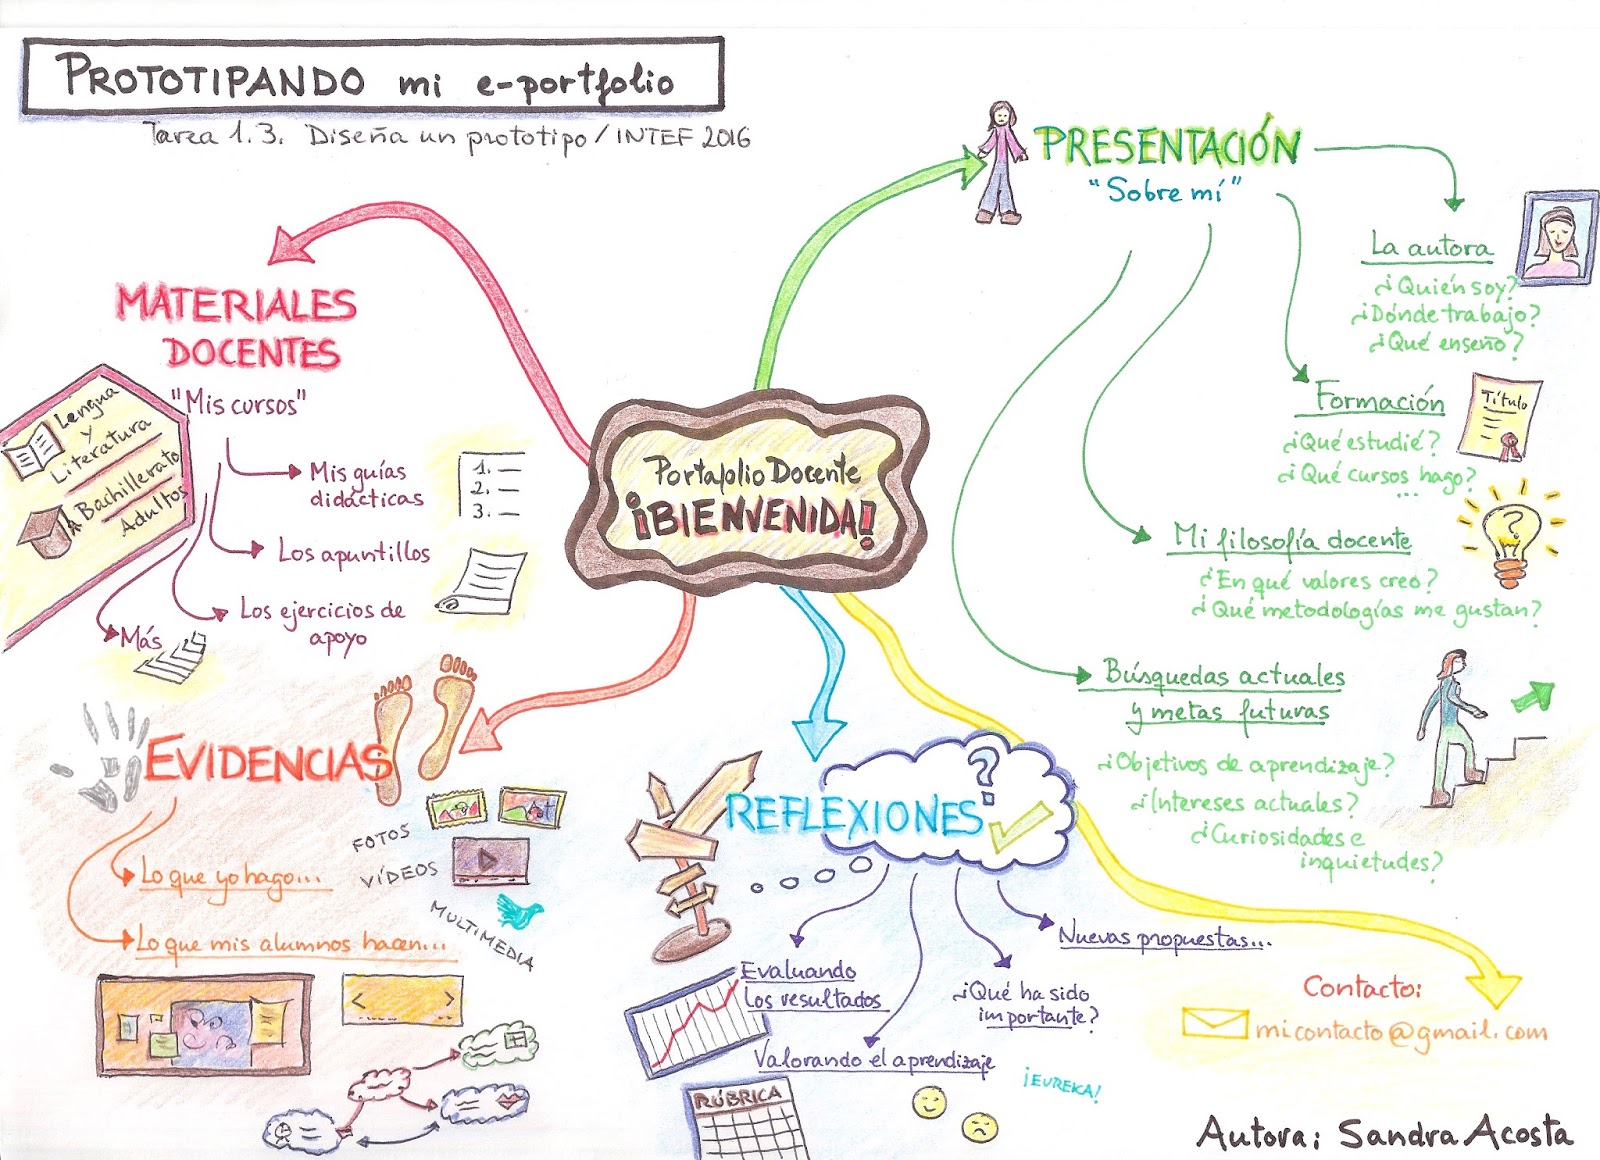 PROTOTIPANDO mi e-portfolio
Tarea 1.3. Diseña un prototipo / INTEF 2016
Portafolio Docente
¡BIENVENIDA!
PRESENTACIÓN
"Sobre mí"
La autora
¿Quién soy?
¿Dónde trabajo?
¿Qué enseño?
Formación
¿Qué estudié?
¿Qué cursos hago?
...
Título
Mi filosofía docente
¿En qué valores creo?
¿Qué metodologías me gustan?
?
Búsquedas actuales
y metas futuras
¿Objetivos de aprendizaje?
¿Intereses actuales?
¿Curiosidades e
inquietudes?
MATERIALES
DOCENTES
"Mis cursos"
Lengua
y
Literatura
Bachillerato
Adultos
Mis guías
didácticas
1. —
2. —
3. —
Los apuntillos
Los ejercicios de
apoyo
Más
EVIDENCIAS
Lo que yo hago...
Lo que mis alumnos hacen...
FOTOS
VÍDEOS
MULTIMEDIA
REFLEXIONES
?
Evaluando
los resultados
Valorando el aprendizaje
¿Qué ha sido
importante?
Nuevas propuestas...
¡EUREKA!
RÚBRICA
Contacto:
micontacto@gmail.com
Autora: Sandra Acosta